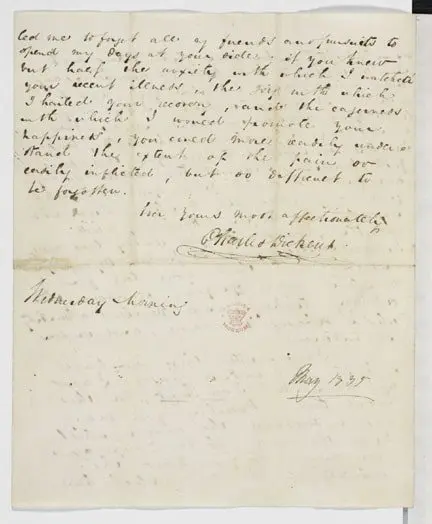 led me to forget all my friends and pursuits to
spend my days at your side; if you knew
but half the anxiety with which I watched
your recent illness, the joy with which
I hailed your recovery, and the eagerness
with which I would promote your
happiness, you could more readily under
stand the extent of the pain so
easily inflicted, but so difficult to
be forgotten.
Ever yours most affectionately
Charles Dickens
Wednesday Morning
May 1835